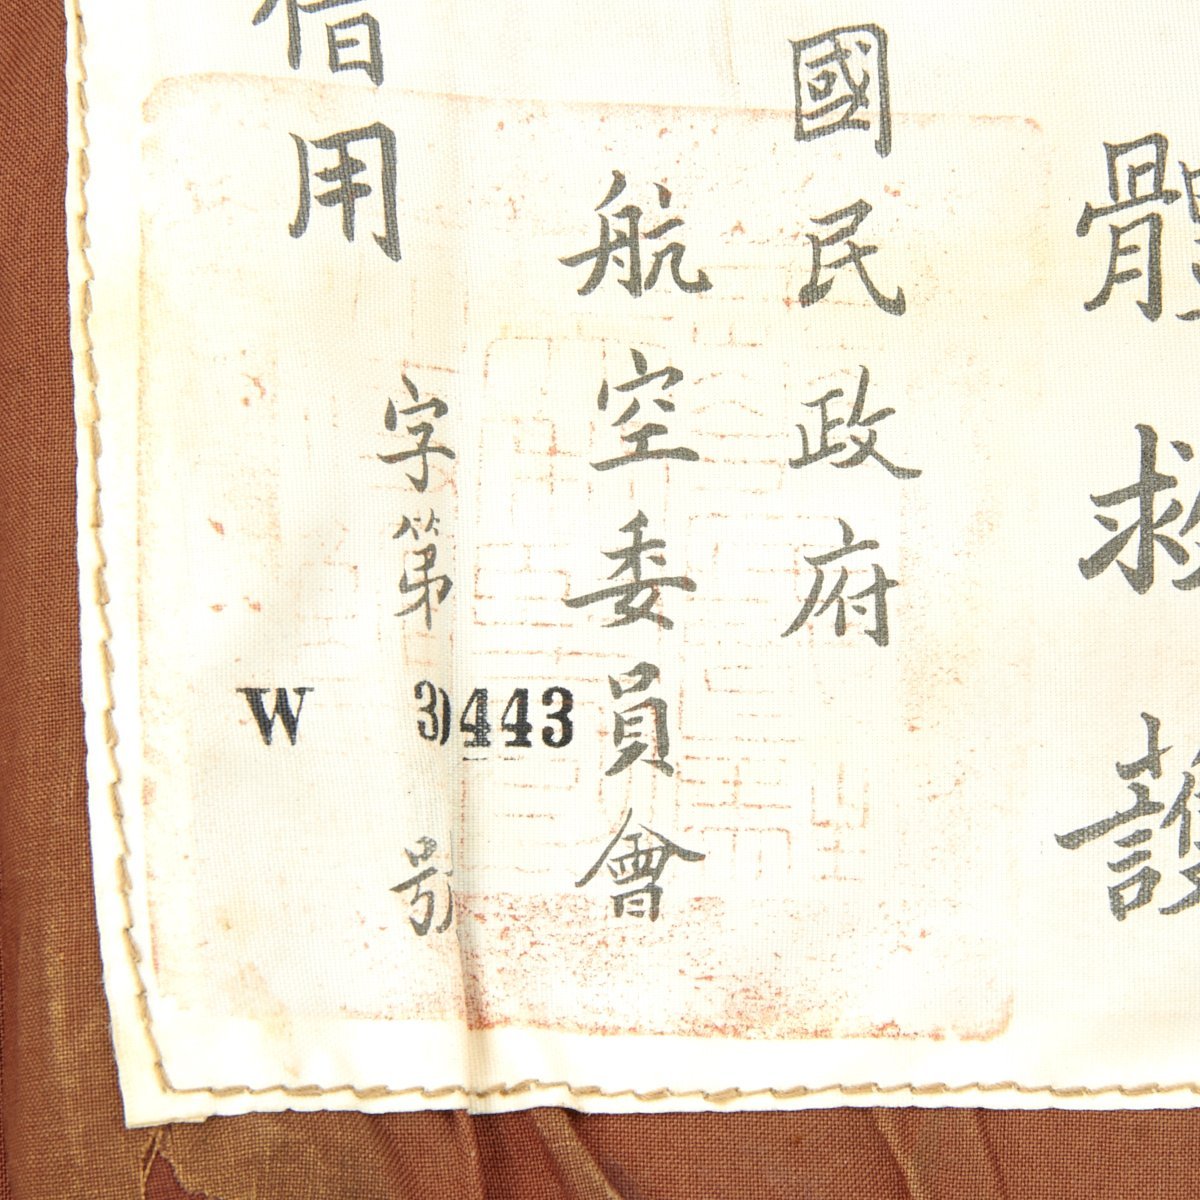 體救護
國民政府
航空委員會
字第
W 3)443
号
借用